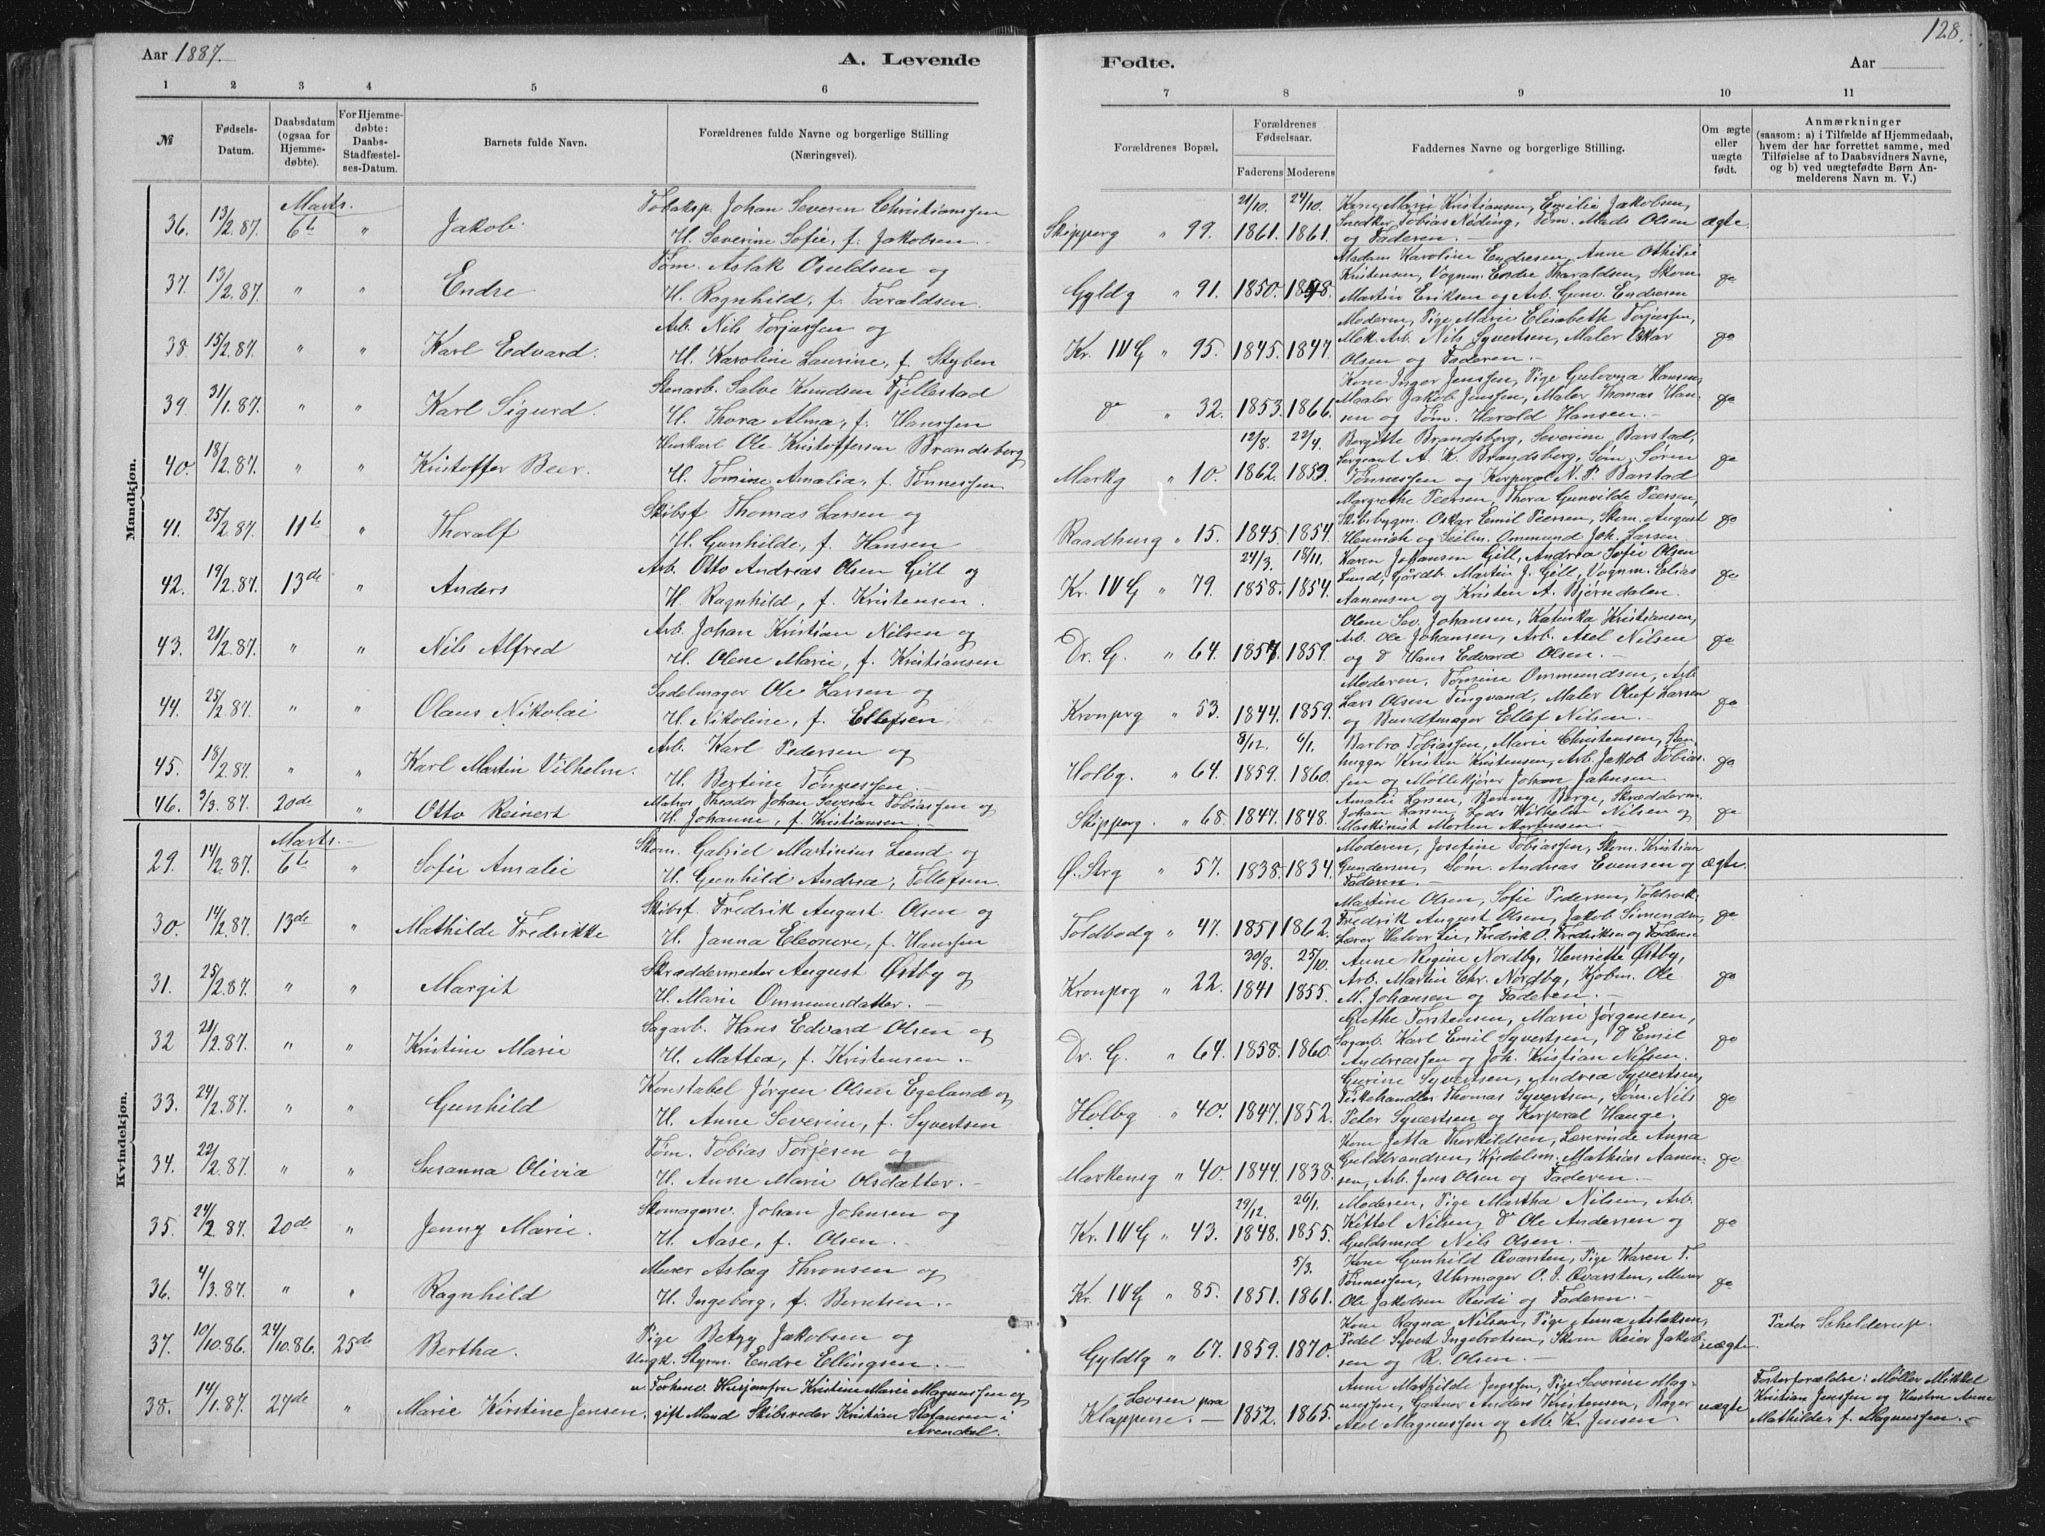 128.
Aar 1887.
A. Levende
Fødte.
Aar
1 2 3 4 5 6 7 8 9 10 11
№
Fødsels-Datum.
Daabsdatum (ogsaa for Hjemme-døbte).
For Hjemme-døbte: Daabs-Stadfæstel-ses-Datum.
Barnets fulde Navn.
Forældrenes fulde Navne og borgerlige Stilling (Næringsvei).
Forældrenes Bopæl.
Forældrenes Fødselsaar.
Faderens Moderens
Faddernes Navne og borgerlige Stilling.
Om ægte eller uægte født.
Anmærkninger (saasom: a) i Tilfælde af Hjemmedaab, hvem der har forrettet samme, med Tilføielse af to Daabsvidners Navne, og b) ved uægtefødte Børn An-melderens Navn m. V.)
Mandkjøn.
Marts.
36. 13/2.87. 6te " Jakob. Tobaksp. Johan Severin Christianssen
H. Severine Sofie, f. Jakobsen.
Skipperg " 99. 21/10. 1861. 24/10. 1861. Kone Marie Kristiansen, Emilie Jakobsen,
Snedker Tobias Nöding, Tøm. Mads Olsen
og Faderen. ægte.
37. 13/2.87. " " Endre Tøm. Aslak Osuldsen og
H. Ragnhild, f. Taraldsen.
Gyldg " 91. 1850. 1848. Madam Karoline Endresen, Anne Othilie
Kristensen, Vognm. Endre Tharaldsen, Skom.
Martin Eriksen og Arb. Gunv. Endresen do
38. 15/2.87. " " Karl Edvard. Arb. Nils Torjussen og
H. Karoline Laurine, f. Styben
Kr. IV G " 95. 1845. 1847. Moderen, Pige Marie Elisabeth Torjussen,
Mek. Arb. Nils Syvertsen, Maler Oskar
Olsen og Faderen. do
39. 31/1.87. " " Karl Sigurd. Stenarb. Salve Knudsen Fjellestad
H. Thora Alma, f. Hanssen
do " 32. 1853. 1866. Kone Inger Jenssen, Pige Gulovna Hansen,
Maaler Jakob Jenssen, Maler Thomas Han-
sen og Tøm. Harald Hansen. do
40. 18/2.87. " " Kristoffer Beer. Huskarl Ole Kristoffersen Brandsberg
H. Tomine Amalia, f. Tønnessen.
Markg " 10. 12/8. 1862. 22/4. 1859. Bergitte Brandsberg, Severine Barstad,
Sergeant A. K. Brandsberg, Søm. Søren
Tønnessen og Korporal N. P. Barstad do
41. 25/2.87. 11te " Thoralf Skibsf. Thomas Larsen og
H. Gunhilde, f. Hansen
Raadhusg " 15. 1845. 1854. Margrethe Peersen, Thora Gunvilde Peersen,
Skibsbygm. Oskar Emil Peersen, Skom. August
Henrich og Seilm. Ommund Joh. Larsen. do
42. 19/2.87. 13de " Anders Arb. Otto Andreas Olsen Gill og
H. Ragnhild, f. Kristensen.
Kr. IV G " 79. 24/3. 1858. 18/11. 1854. Karen Johansen Gill, Andrea Sofie Olsen
Lund, Gårdb. Martin J. Gill, Vognm. Elias
Aanensen og Kristen A. Bjørndalen. do
43. 21/2.87. " " Nils Alfred Arb. Johan Kristian Nilsen og
H. Olene Marie, f. Kristiansen
Dr. G. " 64. 1857. 1859. Olene Sev. Johansen, Katinka Kristiansen,
Arb. Ole Johansen, Arb. Axel Nilsen
og do Hans Edvard Olsen. do
44. 25/2.87. " " Olaus Nikolai Sadelmager Ole Larsen og
H. Nikoline, f. Ellefsen.
Kronprg " 53. 1844. 1859. Moderen, Tomine Ommundsen, Arb.
Lars Olsen Tingvand, Maler Oluf Larsen
og Bundtmager Ellef Nilsen. do
45. 18/2.87. " " Karl Martin Vilhelm. Arb. Karl Pedersen og
H. Bertine Tønnessen
Holbg. " 64. 8/12. 1859. 6/1. 1860. Barbro Tobiassen, Marie Christensen,
hugger Kristen Kristensen, Arb. Jakob Tobias-
sen og Møllekjører Johan Jahnsen. do
46. 3/3.87. 20de " Otto Reinert Matros Theodor Johan Severin Tobiassen og
H. Johanne, f. Kristiansen.
Skipperg. " 68. 1847. 1848. Amalie Larsen, Benny Berge, Skrædderm.
Johan Larsen, Lods Wilhelm Nilsen og
Maskinist Morten Mortensen. do
Kvindekjøn.
Marts.
29. 14/2.87. 6te " Sofie Amalie Skom. Gabriel Martinius Lund og
H. Gunhild Andrea, Tellefsen.
Ø. Strg " 57. 1838. 1834. Moderen, Josefine Tobiassen, Skom. Kristian
Gundersen, Søm. Andreas Evensen og
Faderen. ægte.
30. 14/2.87. 13de " Mathilde Fredrikke Skibsf. Fredrik August Olsen og
H. Janna Eleonore, f. Hanssen
Toldbodg " 47. 1851 1862. Martine Olsen, Sofie Pedersen,
Fredrik August Olsen, Jakob Simonsen,
Lærer Halvor Lie, Fredrik O. Fredriksen og Faderen do
31. 25/2.87. " " Margit Skræddermester August Østby og
H. Marie Ommundsdatter.
Kronprg " 22. 30/8. 1841 25/10. 1855. Anne Regine Nordby, Henriette Østby,
Arb. Martin Chr. Nordby, Kjøbm. Ole
M. Johansen og Faderen. do
32 21/2.87. " " Kristine Marie Sagarb. Hans Edvard Olsen og
H. Mattea, f. Kristensen.
Dr. G. " 64. 1858. 1860. Grethe Torstensen, Marie Jørgensen,
Sagarb. Karl Emil Syvertsen, do Emil
Andreassen og Joh. Kristian Nilsen. do
33. 24/2.87. " " Gunhild Konstabel Jørgen Olsen Egeland og
H. Anne Severine, f. Syvertsen
Holbg " 40. 1847. 1852. Gurine Syvertsen, Andrea Syvertsen,
Fiskehandler Thomas Syvertsen, Søm. Nils
Peter Syvertsen og Korporal Hauge. do
34. 22/2.87. " " Susanna Olivia Tøm. Tobias Torjesen og
H. Anne Marie Olsdatter.
Markensg " 40. 1844. 1838. Kone Jetta Therkildsen, Lærerinde Anna
Guldbrandsen, Kjedelsm. Mathias Aanen-
sen, Arb. Jens Olsen og Faderen. do
35. 24/2.87. 20de " Jenny Marie. Skomagersv. Johan Johnsen og
H. Aase, f. Olsen.
Kr. IV G " 43. 29/12. 1848. 26/1. 1855. Moderen, Pige Martha Nilsen, Arb.
Kittel Nilsen, do Ole Andersen og
Guldsmed Nils Olsen. do
36. 4/3.87. " " Ragnhild Murer Aslag Thronsen og
H. Ingeborg, f. Berntsen.
Kr. IV G " 85. 1851. 5/3. 1861. Kone Gunhild Qvarsten, Pige Karen T.
Tønnessen, Uhrmager O. J. Qvarsten, Murer
Ole Jakobsen Rudi og Faderen. do
37. 10/10.86. 24/10.86. 25de Bertha. Pige Betzy Jakobsen og
Ungk. Styrm. Endre Ellingsen.
Gyldlg " 67. 1859. 1870. Kone Ragna Nilsen, Pige Anna Aslaksen,
Pedel Syvert Ingebretsen, Skom Reier Jakob-
sen og R. Olsen. uægte Pastor Schelderup.
38. 14/1.87. 27de " Marie Kirstine Jensen. Forhenv. Husjomfru Kristine Marie Magnussen og
gift Mand Skibsreder Kristian Stefansen i
Arendal.
Levsen paa
Klappene. 1852. 1865. Anne Mathilde Jenssen, Pige Severine Mag-
nussen, Gartner Anders Kristensen, Bager
Axel Magnussen og M. K. Jensen. uægte Fosterforældre: Møller Mikkel
Kristian Jenssen og Hustru Anne
Mathilde, f. Magnussen.